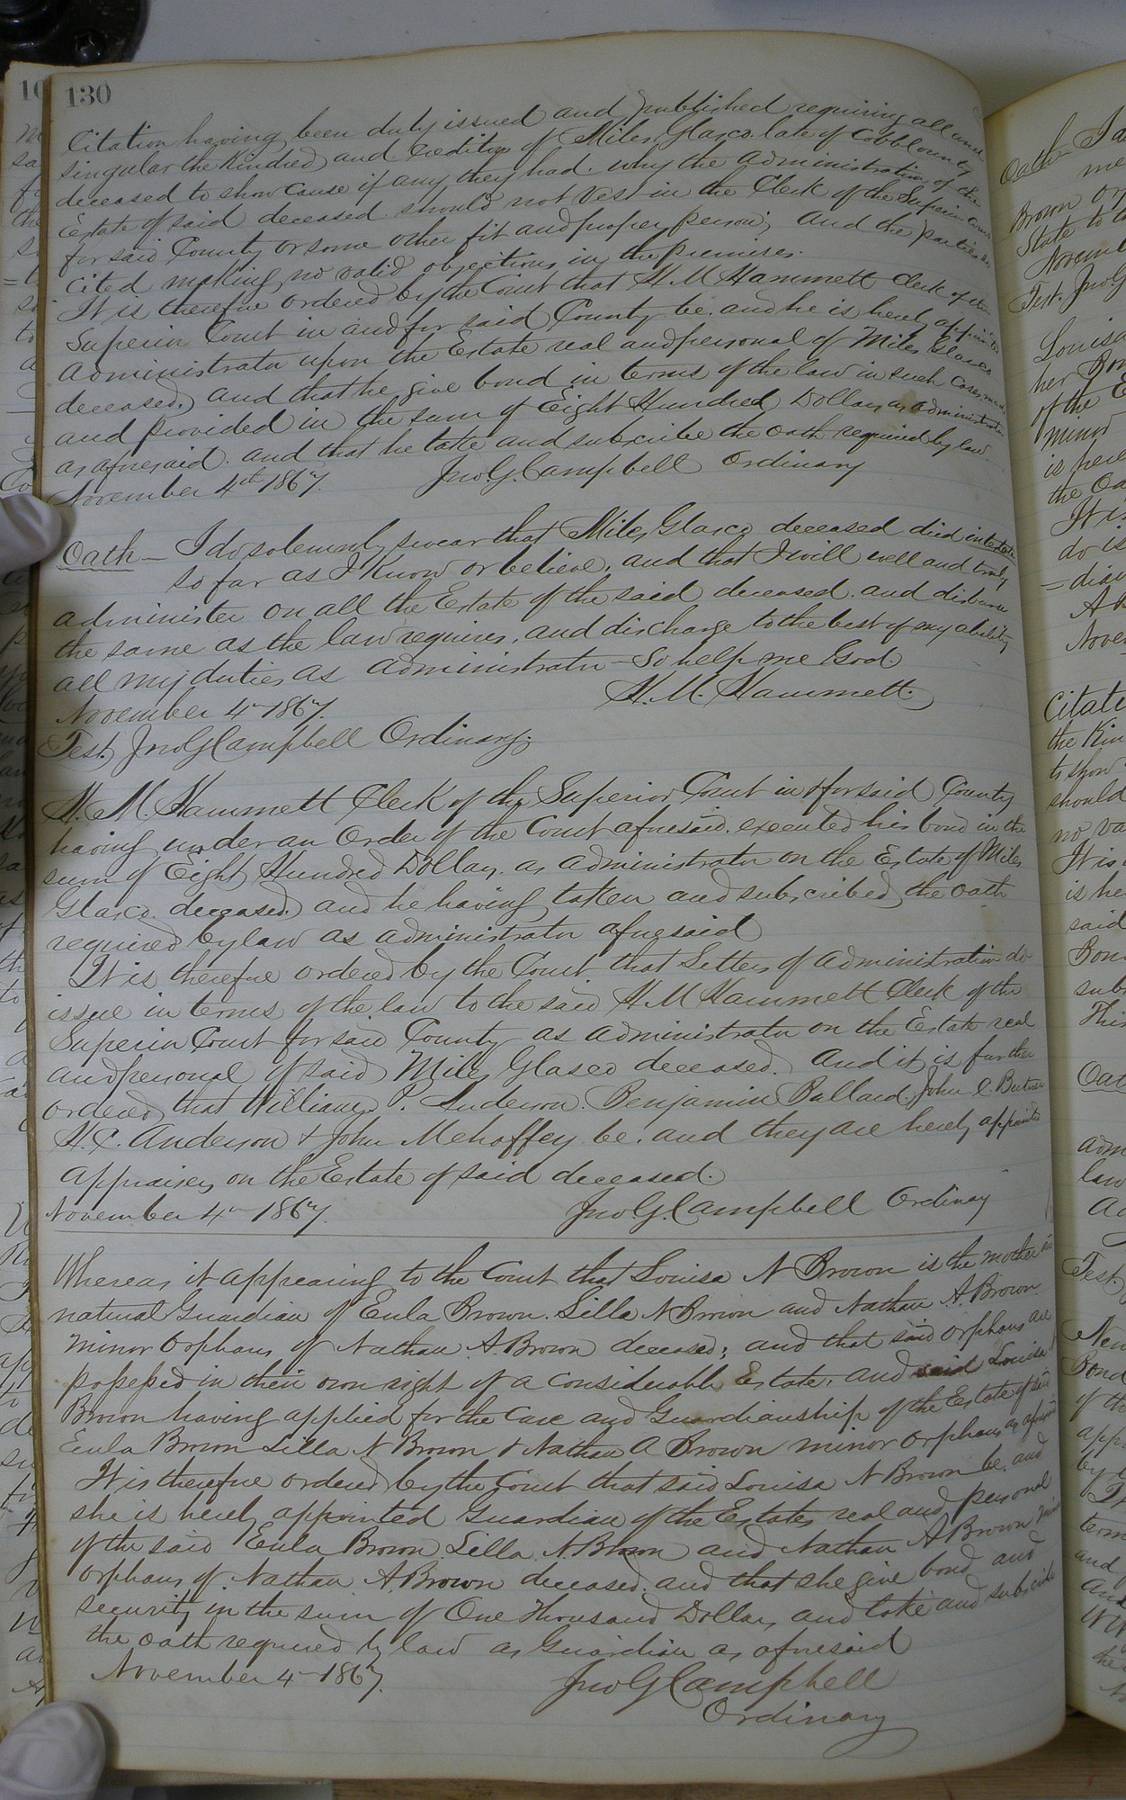 130
Citation having been duly issued and published requiring all and
singular the Kindred and Creditors of Miles Glasco late of Cobb County
deceased to show cause if any they had why the administration of the
Estate of said deceased should not vest in the Clerk of the Superior Court
for said County or some other fit and proper person; and the parties so
cited making no valid objections in the premises.
It is therefore ordered by the Court that H. M Hammett Clerk of the
Superior Court in and for said County be. and he is hereby appointed
administrator upon the Estate real and personal of Miles Glasco
deceased, and that he give bond in terms of the law in such cases made
and provided in the sum of Eight Hundred Dollars as administrator
as aforesaid. and that he take and subscribe the oath required by law.
November 4th 1867. Jno. G. Campbell Ordinary
Oath — I do solemnly swear that Miles Glasco deceased died intestate
so far as I Know or believe. and that I will well and truly
administer on all the Estate of the said deceased. and disburse
the same as the law requires, and discharge to the best of my ability
all my duties as administrator — So help me God.
November 4th 1867. H. M. Hammett.
Test. Jno G Campbell Ordinary.
H. M. Hammett Clerk of the Superior Court in & for said County
having under an Order of the Court aforesaid. executed his bond in the
sum of Eight Hundred Dollars. as administrator on the Estate of Miles
Glasco. deceased, and he having taken and subscribed the oath
required by law as administrator aforesaid
It is therefore ordered by the Court that Letters of administration do
issue in terms of the law to the said H. M Hammett Clerk of the
Superior Court for said County as administrator on the Estate real
and personal of said Miles Glasco deceased. And it is further
ordered that William P. Anderson. Benjamin Bullard. John C. Butner
H. C. Anderson & John Mehaffey be. and they are hereby appointed
appraisers on the Estate of said deceased.
November 4th 1867. Jno G. Campbell Ordinary
Whereas it appearing to the Court that Louisa N Brown is the mother and
natural Guardian of Eula Brown. Lilla N Brown and Nathan A. Brown
minor orphans of Nathan A Brown deceased; and that said orphans are
possessed in their own right of a considerable Estate. and said Louisa
Brown having applied for the Care and Guardianship of the Estate of said
Eula Brown Lilla N Brown & Nathan A Brown minor orphans as aforesaid
It is therefore ordered by the Court that said Louisa N Brown be. and
she is hereby appointed Guardian of the Estates real and personal
of the said Eula Brown Lilla N. Brown and Nathan A Brown minor
orphans of Nathan A Brown deceased. and that she give bond and
security in the sum of One Thousand Dollars and take and subscribe
the oath required by law as Guardian as aforesaid
November 4th 1867. Jno G Campbell
Ordinary